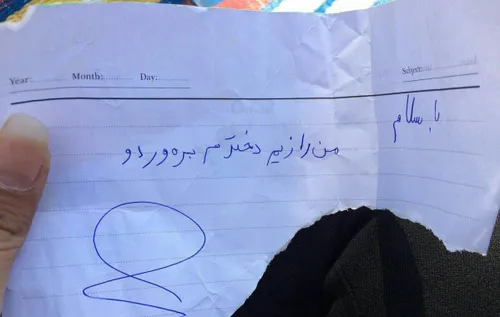 Year: Month: Day: Subject:
با سلام
من رازیم دخترم بره وردو